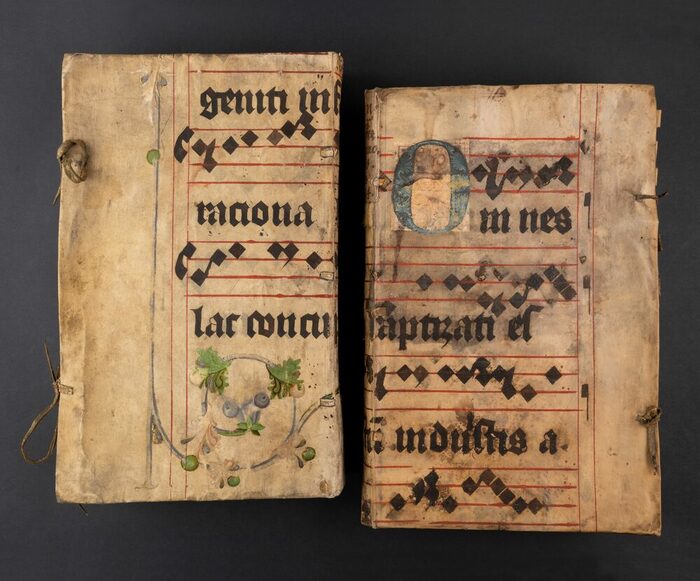 geniti inf
raciona
lac concu
O
m nes
baptizati es
induistis a